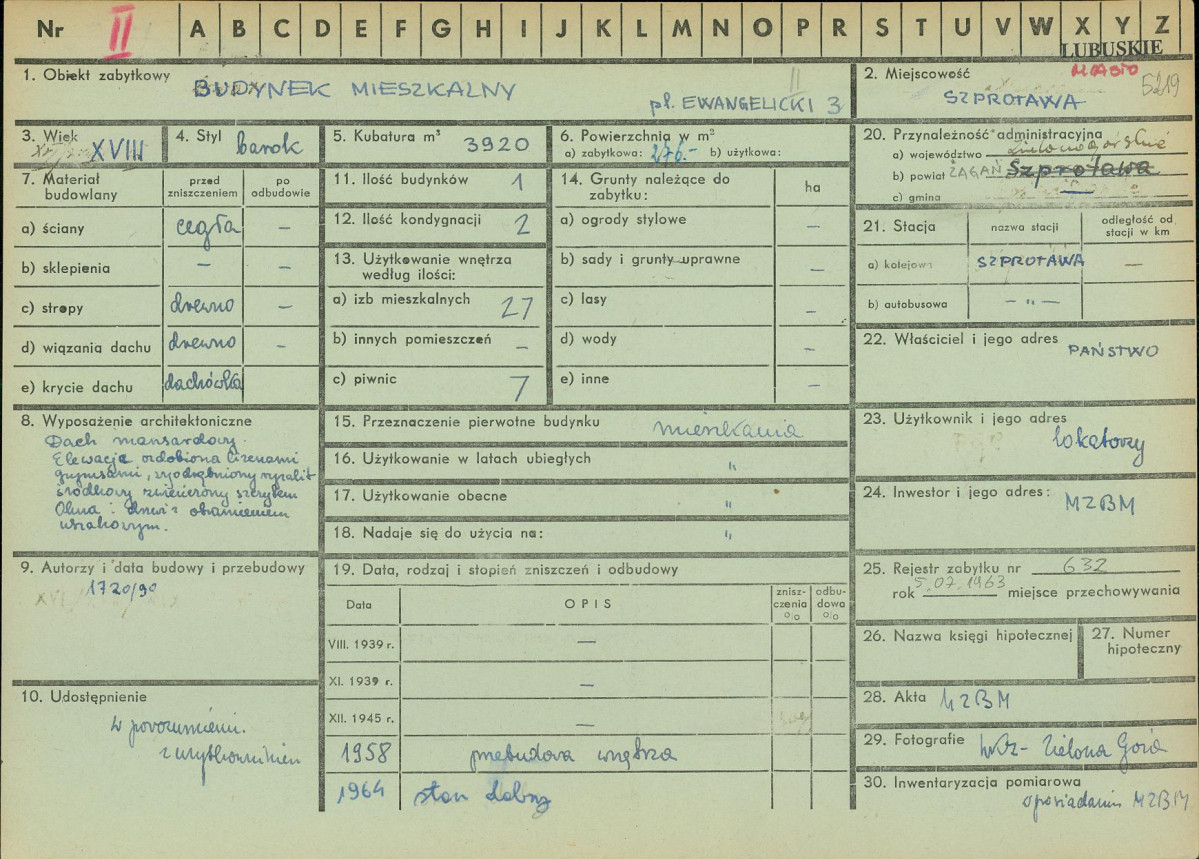 Nr II A B C D E F G H I J K L M N O P R S T U V W X Y Z
LUBUSKIE
MIASTO
5219
1. Obiekt zabytkowy
BUDYNEK MIESZKALNY
II
pl. EWANGELICKI 3
2. Miejscowość
SZPROTAWA
3. Wiek
XVIII
4. Styl barok
5. Kubatura m³ 3920
6. Powierzchnia w m²
a) zabytkowa: 276.- b) użytkowa:
7. Materiał budowlany
przed zniszczeniem
po odbudowie
a) ściany cegła –
b) sklepienia – –
c) stropy drewno –
d) wiązania dachu drewno –
e) krycie dachu dachówka
8. Wyposażenie architektoniczne
Dach mansardowy.
Elewacja ozdobiona lizenami
gzymsami, wyodrębniony ryzalit
środkowy zwieńczony szczytem
Okna i drzwi z obramieniem
uszakowym.
9. Autorzy i data budowy i przebudowy
1720/90
10. Udostępnienie
W porozumieniu
z użytkownikiem
11. Ilość budynków 1
12. Ilość kondygnacji 2
13. Użytkowanie wnętrza
według ilości:
a) izb mieszkalnych 27
b) innych pomieszczeń –
c) piwnic 7
14. Grunty należące do
zabytku:
ha
a) ogrody stylowe –
b) sady i grunty uprawne –
c) lasy –
d) wody –
e) inne –
15. Przeznaczenie pierwotne budynku mieszkania
16. Użytkowanie w latach ubiegłych "
17. Użytkowanie obecne "
18. Nadaje się do użycia na: "
19. Data, rodzaj i stopień zniszczeń i odbudowy
Data OPIS znisz-czenia % odbu-dowa %
VIII. 1939 r. —
XI. 1939 r. —
XII. 1945 r. —
1958 przebudowa wnętrza
1964 stan dobry
20. Przynależność administracyjna
a) województwo zielonogórskie
b) powiat ŻAGAŃ Szprotawa
c) gmina —
21. Stacja
nazwa stacji
odległość od
stacji w km
a) kolejowa SZPROTAWA —
b) autobusowa – " –
22. Właściciel i jego adres
PAŃSTWO
23. Użytkownik i jego adres
lokatorzy
24. Inwestor i jego adres:
MZBM
25. Rejestr zabytku nr 632
rok 5.07.1963 miejsce przechowywania
26. Nazwa księgi hipotecznej
27. Numer
hipoteczny
28. Akta MZBM
29. Fotografie WKZ - Zielona Góra
30. Inwentaryzacja pomiarowa
w posiadaniu MZBM